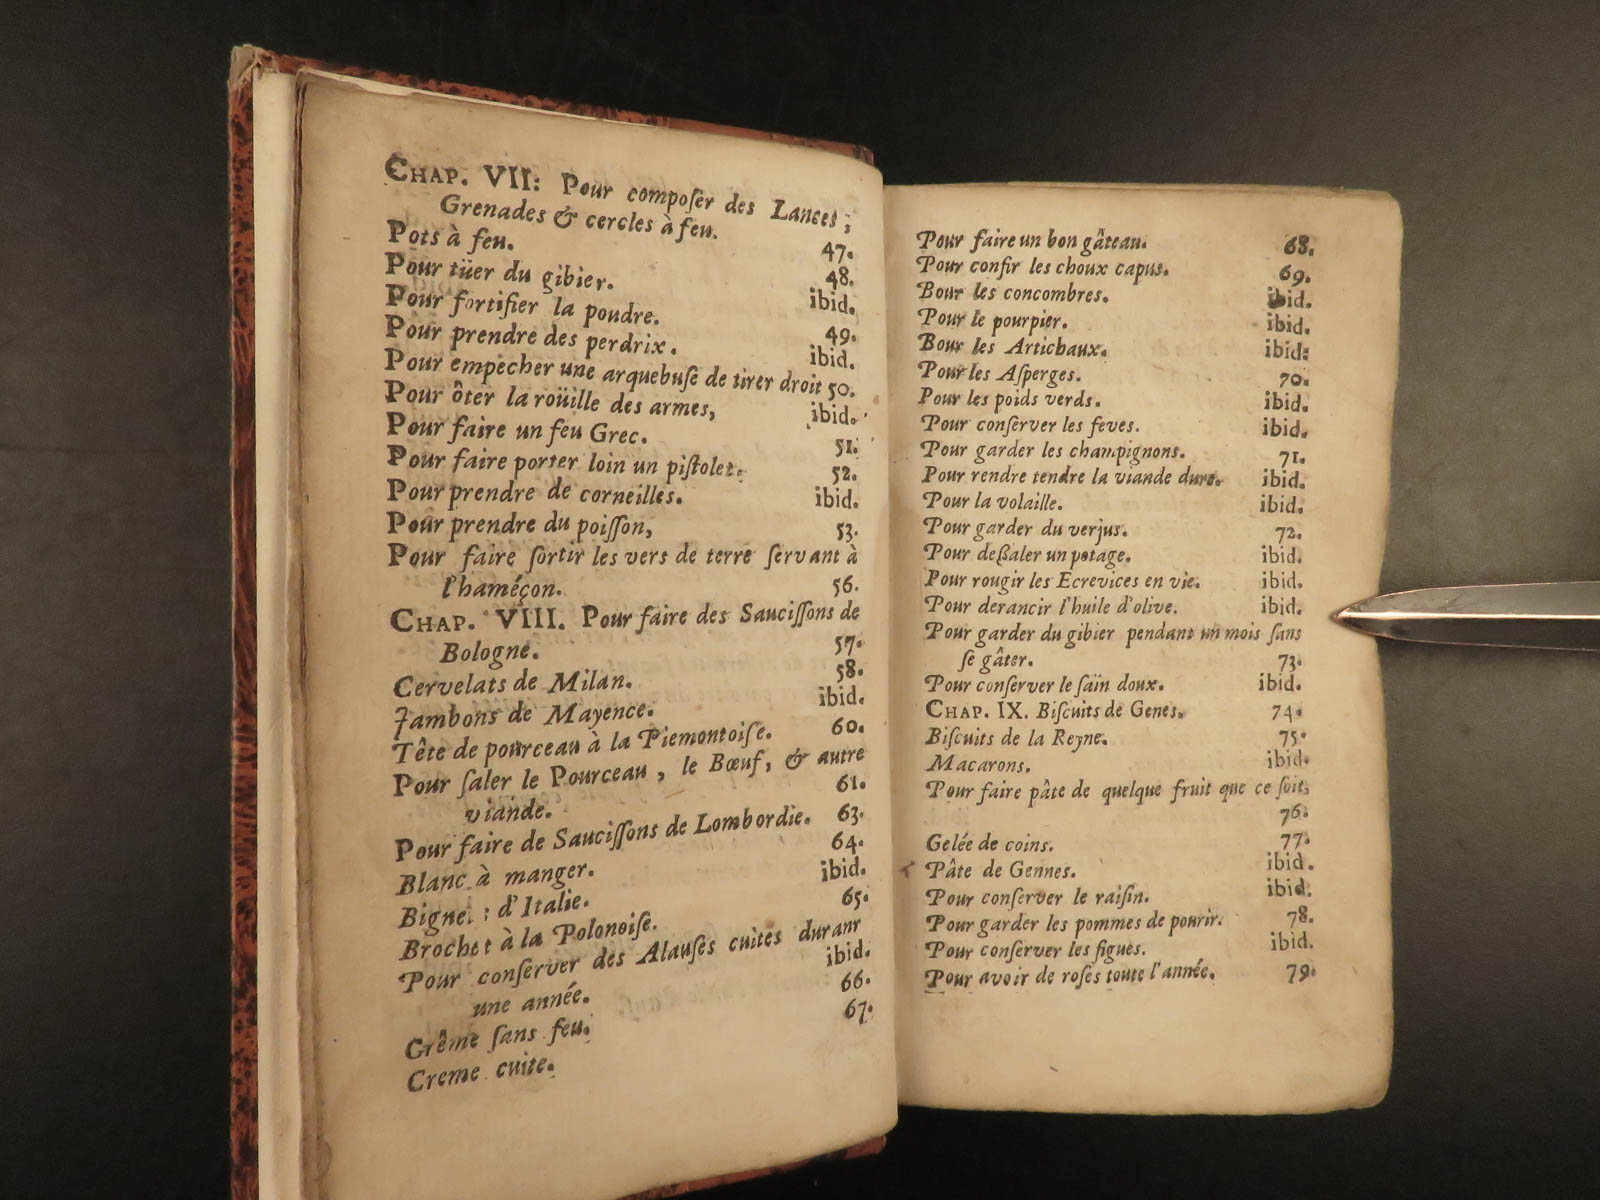 CHAP. VII: Pour compoſer des Lances;
Grenades & cercles à feu. 47.
Pots à feu. 48.
Pour tüer du gibier. ibid.
Pour fortifier la poudre. 49.
Pour prendre des perdrix. ibid.
Pour empécher une arquebuſe de tirer droit 50.
Pour ôter la roüille des armes, ibid.
Pour faire un feu Grec. 51.
Pour faire porter loin un piſtolet. 52.
Pour prendre de corneilles. ibid.
Pour prendre du poiſſon, 53.
Pour faire ſortir les vers de terre ſervant à
l'haméçon. 56.
CHAP. VIII. Pour faire des Sauciſſons de
Bologne. 57.
Cervelats de Milan. 58.
Jambons de Mayence. ibid.
Tête de pourceau à la Piemontoiſe. 60.
Pour ſaler le Pourceau, le Bœuf, & autre
viande. 61.
Pour faire de Sauciſſons de Lombordie. 63.
Blanc à manger. 64.
Bignets d'Italie. ibid.
Brochet à la Polonoiſe. 65.
Pour conſerver des Alauſes cuites durant
une année. ibid.
Crême ſans feu. 66.
Creme cuite. 67.
Pour faire un bon gâteau. 68.
Pour confir les choux capus. 69.
Bour les concombres. ibid.
Pour le pourpier. ibid.
Bour les Artichaux. ibid:
Pour les Aſperges. 70.
Pour les poids verds. ibid.
Pour conſerver les feves. ibid.
Pour garder les champignons. 71.
Pour rendre tendre la viande dure. ibid.
Pour la volaille. ibid.
Pour garder du verjus. 72.
Pour deßaler un potage. ibid.
Pour rougir les Ecrevices en vie. ibid.
Pour derancir l'huile d'olive. ibid.
Pour garder du gibier pendant un mois ſans
ſe gâter. 73.
Pour conſerver le ſaïn doux. ibid.
CHAP. IX. Biſcuits de Genes. 74.
Biſcuits de la Reyne. 75.
Macarons. ibid.
Pour faire pâte de quelque fruit que ce ſoit,
76.
Gelée de coins. 77.
Pâte de Gennes. ibid.
Pour conſerver le raiſin. ibid.
Pour garder les pommes de pourir. 78.
Pour conſerver les figues. ibid.
Pour avoir de roſes toute l'année. 79.